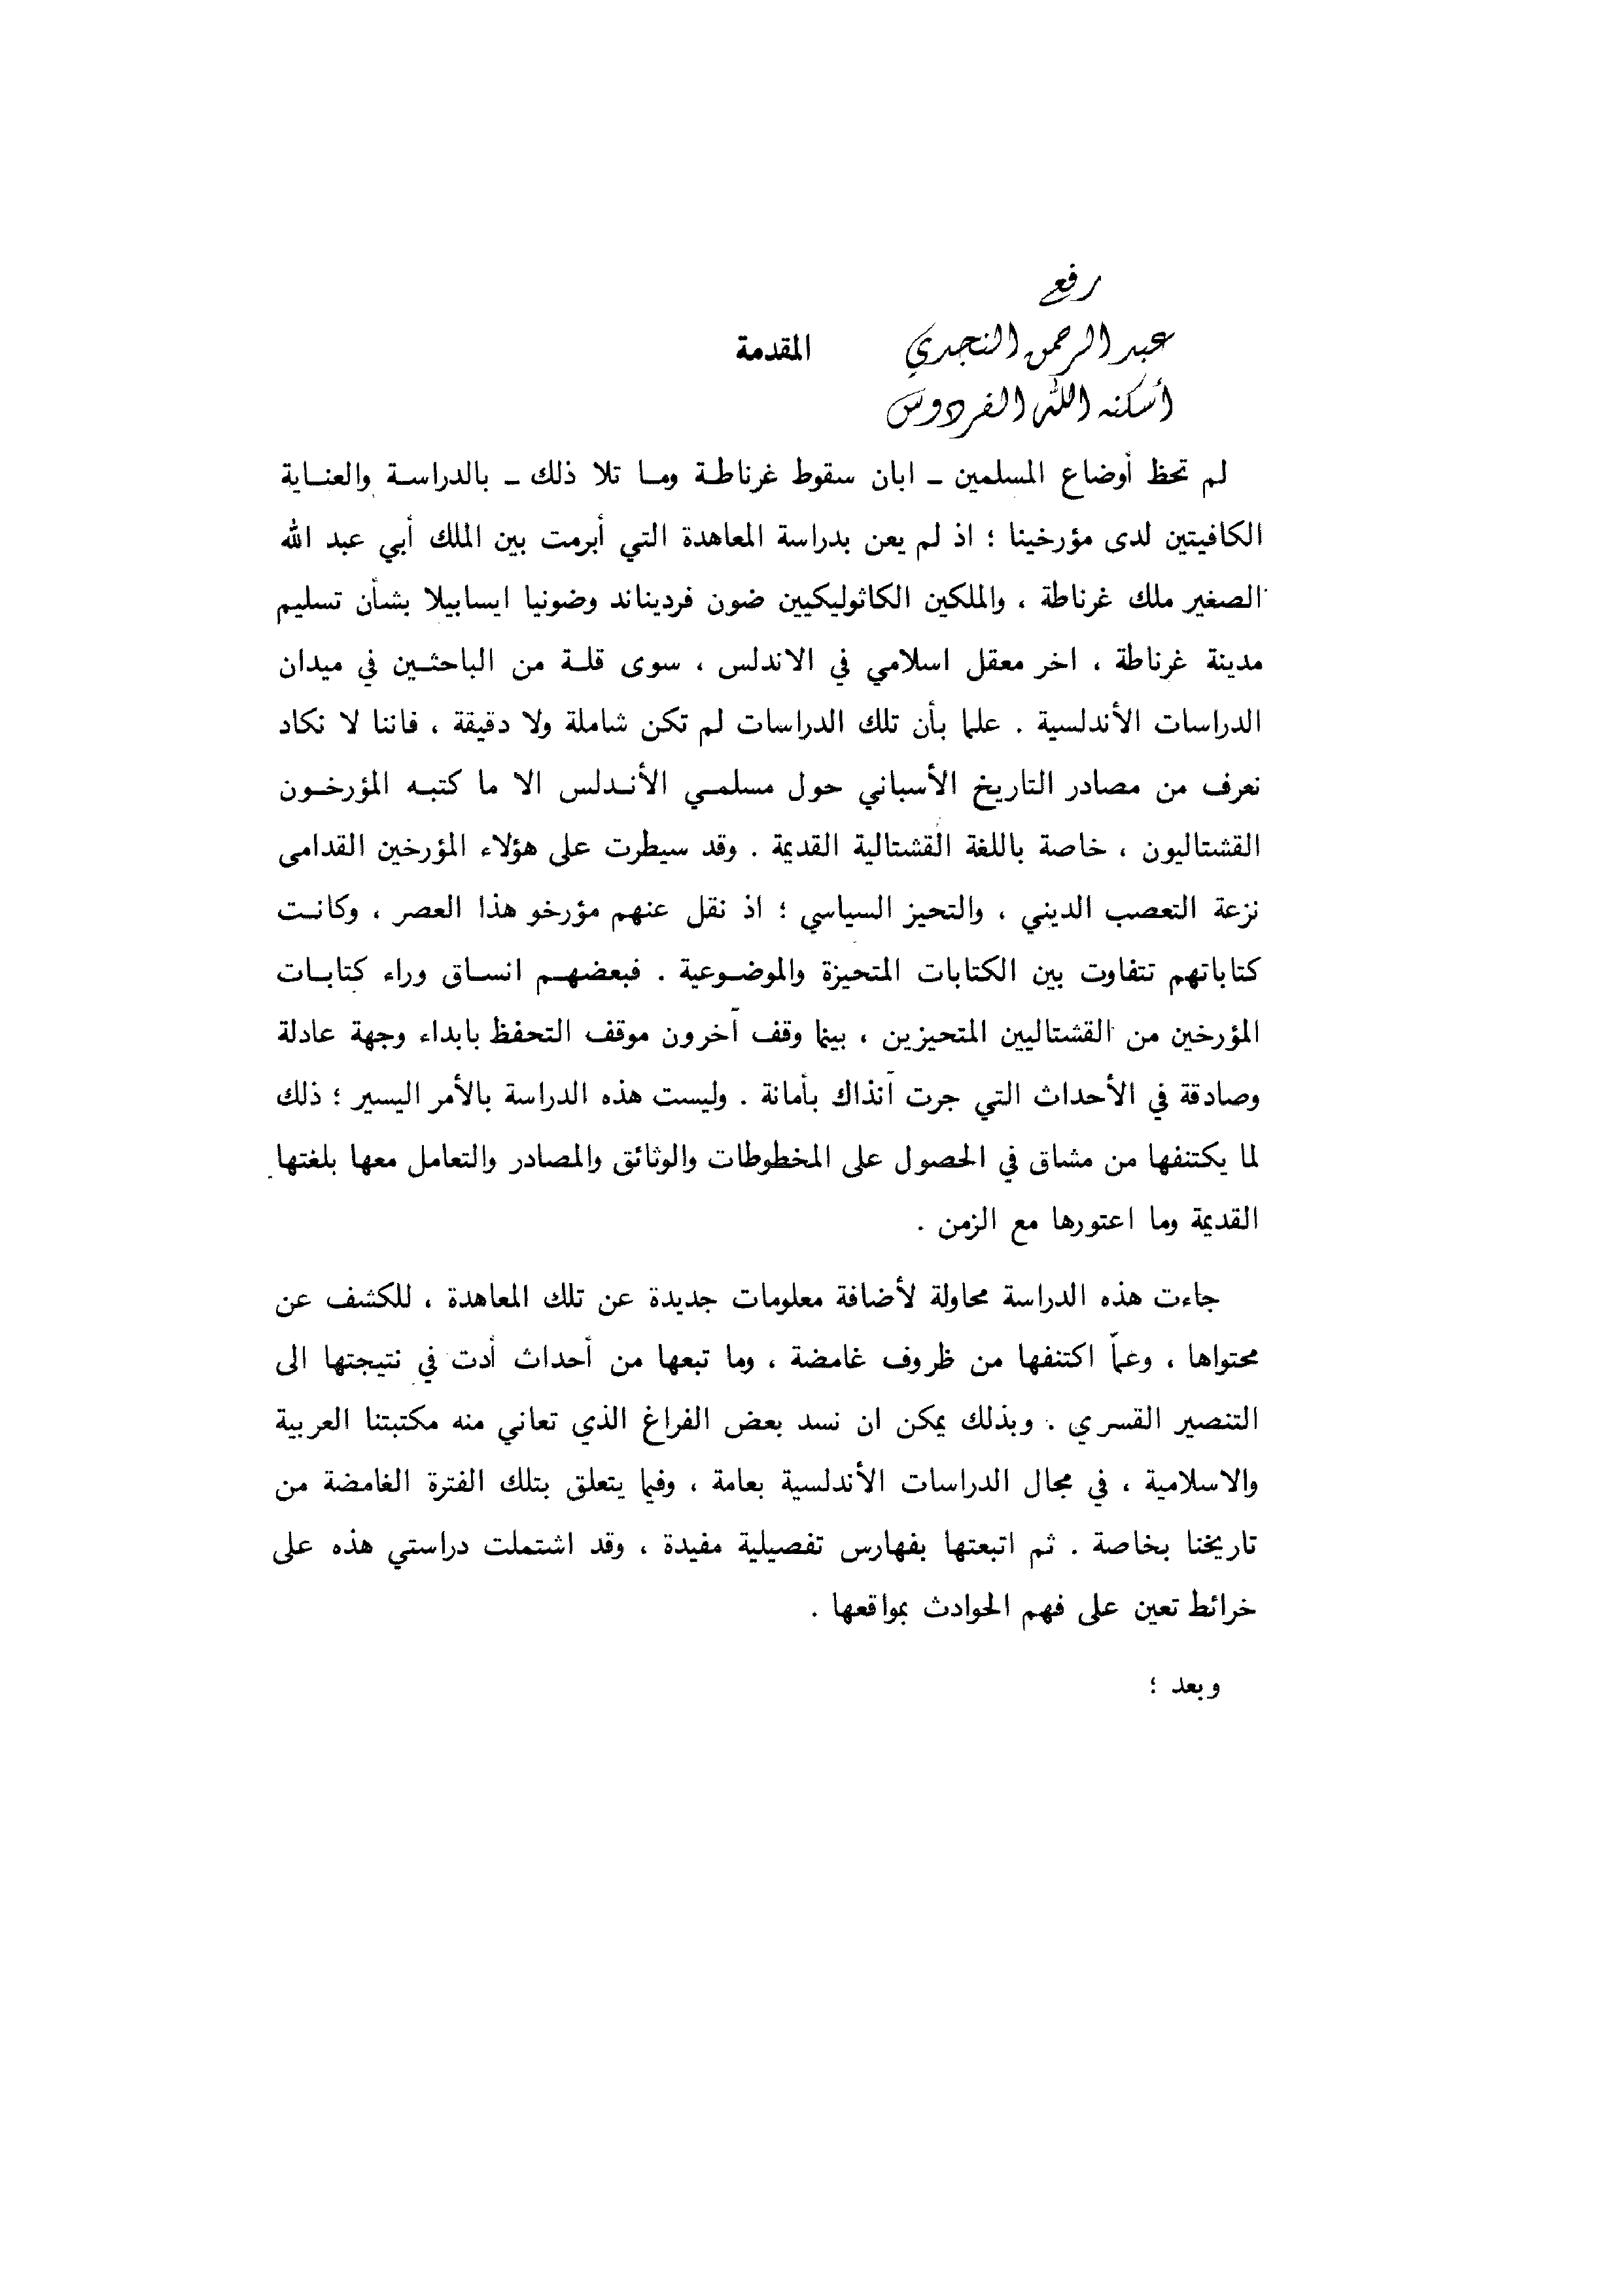 رفع
عبد الرحمن النجدي
أسكنه الله الفردوس
المقدمة
لم تحظ أوضاع المسلمين ـ ابان سقوط غرناطة وما تلا ذلك ـ بالدراسة والعناية
الكافيتين لدى مؤرخينا ؛ اذ لم يعن بدراسة المعاهدة التي أبرمت بين الملك أبي عبد الله
الصغير ملك غرناطة ، والملكين الكاثوليكيين ضون فرديناند وضونيا ايسابيلا بشأن تسليم
مدينة غرناطة ، اخر معقل اسلامي في الاندلس ، سوى قلة من الباحثين في ميدان
الدراسات الأندلسية . علما بأن تلك الدراسات لم تكن شاملة ولا دقيقة ، فاننا لا نكاد
نعرف من مصادر التاريخ الأسباني حول مسلمي الأندلس الا ما كتبه المؤرخون
القشتاليون ، خاصة باللغة القشتالية القديمة . وقد سيطرت على هؤلاء المؤرخين القدامى
نزعة التعصب الديني ، والتحيز السياسي ؛ اذ نقل عنهم مؤرخو هذا العصر ، وكانت
كتاباتهم تتفاوت بين الكتابات المتحيزة والموضوعية . فبعضهم انساق وراء كتابات
المؤرخين من القشتاليين المتحيزين ، بينما وقف آخرون موقف التحفظ بابداء وجهة عادلة
وصادقة في الأحداث التي جرت آنذاك بأمانة . وليست هذه الدراسة بالأمر اليسير ؛ ذلك
لما يكتنفها من مشاق في الحصول على المخطوطات والوثائق والمصادر والتعامل معها بلغتها
القديمة وما اعتورها مع الزمن .
جاءت هذه الدراسة محاولة لأضافة معلومات جديدة عن تلك المعاهدة ، للكشف عن
محتواها ، وعمّا اكتنفها من ظروف غامضة ، وما تبعها من أحداث أدت في نتيجتها الى
التنصير القسري . وبذلك يمكن ان نسد بعض الفراغ الذي تعاني منه مكتبتنا العربية
والاسلامية ، في مجال الدراسات الأندلسية بعامة ، وفيما يتعلق بتلك الفترة الغامضة من
تاريخنا بخاصة . ثم اتبعتها بفهارس تفصيلية مفيدة ، وقد اشتملت دراستي هذه على
خرائط تعين على فهم الحوادث بمواقعها .
وبعد ؛